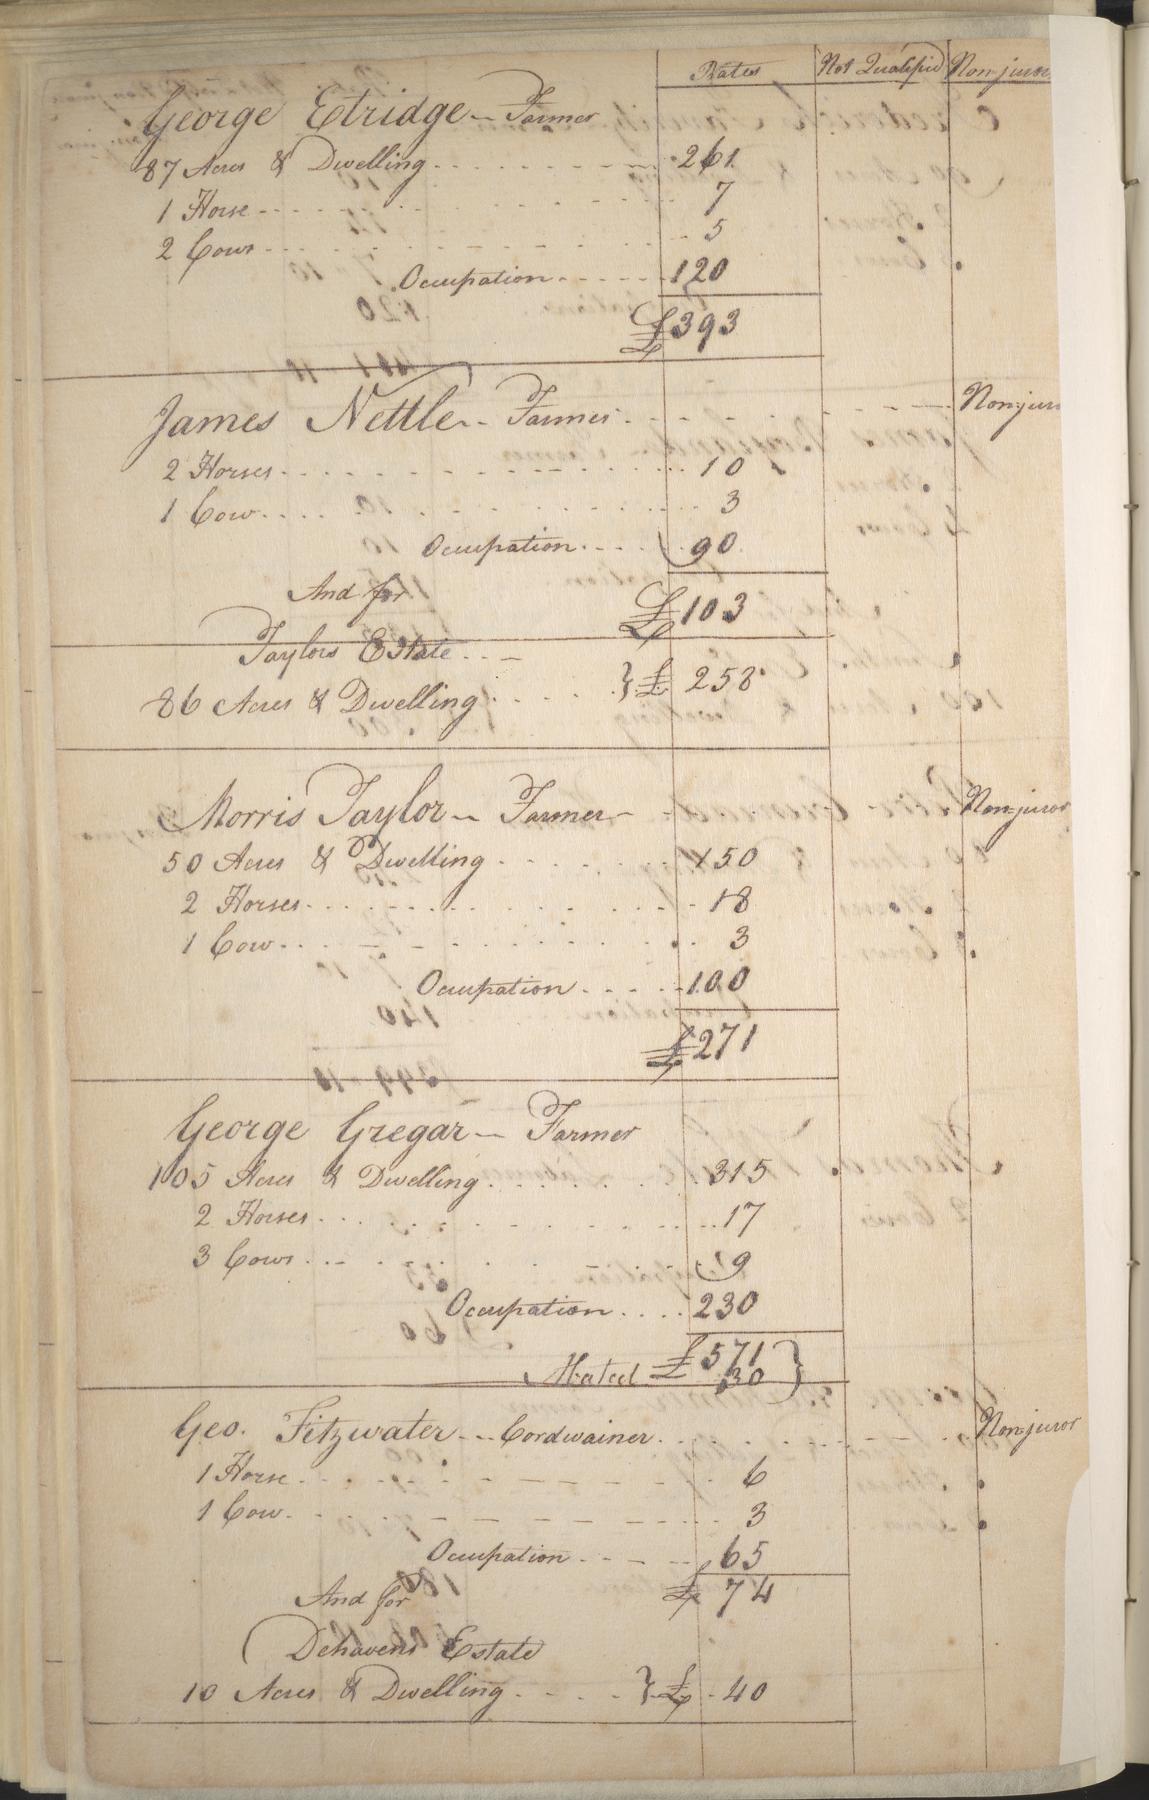 Rates Not Qualified Non-juror
George Etridge -- Farmer
87 Acres & Dwelling 261
1 Horse 7
2 Cows 5
Occupation 120
£393
James Nettle -- Farmer Non-juror
2 Horses 10
1 Cow 3
Occupation 90
And for £103
Taylors Estate
86 Acres & Dwelling } £ 258
Morris Taylor -- Farmer Non-juror
50 Acres & Dwelling 150
2 Horses 18
1 Cow 3
Occupation 100
£271
George Gregar -- Farmer
105 Acres & Dwelling 315
2 Horses 17
3 Cows 9
Occupation 230
£571
Abated 30 }
Geo. Fitzwater -- Cordwainer Non-juror
1 Horse 6
1 Cow 3
Occupation 65
And for £ 74
Dehavens Estate
10 Acres & Dwelling } £ 40